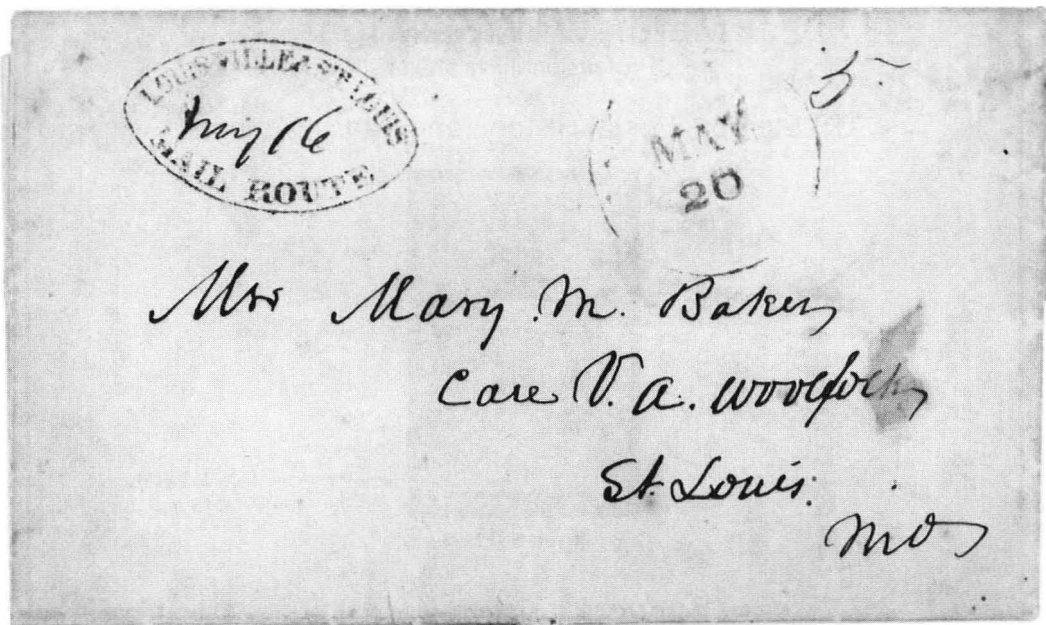 LOUISVILLE & ST. LOUIS
May 16
MAIL ROUTE
5
MAY
20
Mrs Mary M. Baker
Care V. A. Woolfolk
St Louis.
Mo